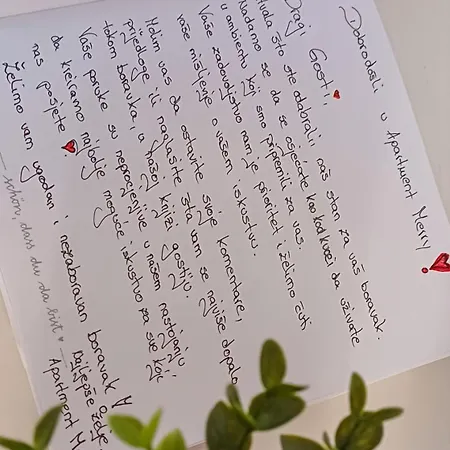 Dobrodošli u Apartment Merry
Dragi Gosti,
Hvala što ste odabrali naš stan za vaš boravak.
Nadamo se da se osjećate kao kod kuće i da uživate
u ambientu koji smo pripremili za vas.
Vaše zadovoljstvo nam je prioritet i želimo čuti
vaše mišljenje o vašem iskustvu.
Molim vas da ostavite svoje komentare,
prijedloge ili naglasite šta vam se najviše dopalo
tokom boravka, u našoj knjizi gostiju.
Vaše poruke su neprocjenjive u našem nastojanju
da kreiramo najbolje moguće iskustvo za sve koji
nas posjete
Želimo vam ugodan i nezaboravan boravak
Najljepše želje,
Apartment M
schön, dass du da bist